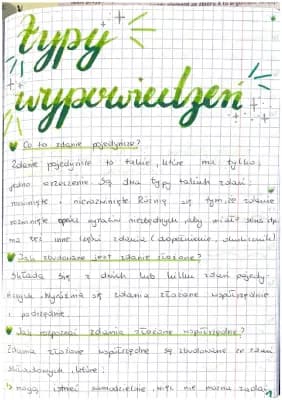 Typy
wypowiedzeń
Co to zdanie pojedyncze?
Zdanie pojedyncze to takie, które ma tylko
jedno orzeczenie. Są dwa typy takich zdań:
rozwinięte i nierozwinięte. Różnią się tym, że zdanie
rozwinięte oprócz wyrazów niezbędnych, aby miało sens
ma też inne części zdania (dopełnienie, okolicznik)
Jak zbudowane jest zdanie złożone?
Składa się z dwóch lub kilku zdań pojedy-
nczych. Wyróżnia się zdania złożone współrzędnie
i podrzędnie.
Jak rozpoznać zdania złożone współrzędnie?
Zdania złożone współrzędnie są zbudowane ze zdań
składowych, które:
mogą istnieć samodzielnie, więc nie można zadać